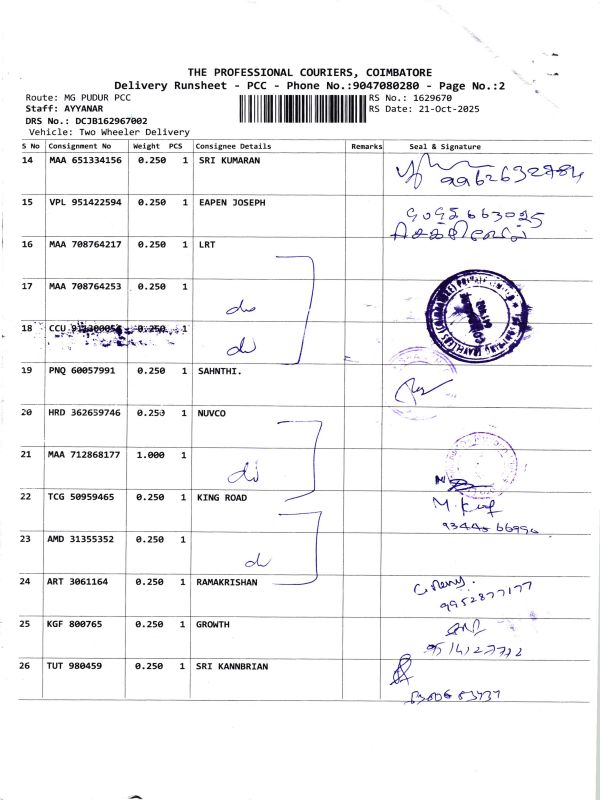 THE PROFESSIONAL COURIERS, COIMBATORE
Delivery Runsheet - PCC - Phone No.:9047080280 - Page No.:2
Route: MG PUDUR PCC
RS No.: 1629670
Staff: AYYANAR
RS Date: 21-Oct-2025
DRS No.: DCJB162967002
Vehicle: Two Wheeler Delivery
S No Consignment No Weight PCS Consignee Details Remarks Seal & Signature
14 MAA 651334156 0.250 1 SRI KUMARAN
9962632784
15 VPL 951422594 0.250 1 EAPEN JOSEPH
9095663025
16 MAA 708764217 0.250 1 LRT
17 MAA 708764253 0.250 1
do
18 CCU 0.250 1
do
19 PNQ 60057991 0.250 1 SAHNTHI.
20 HRD 362659746 0.250 1 NUVCO
21 MAA 712868177 1.000 1
do
22 TCG 50959465 0.250 1 KING ROAD
23 AMD 31355352 0.250 1
do
24 ART 3061164 0.250 1 RAMAKRISHAN
9952877177
25 KGF 800765 0.250 1 GROWTH
9514127772
26 TUT 980459 0.250 1 SRI KANNBRIAN